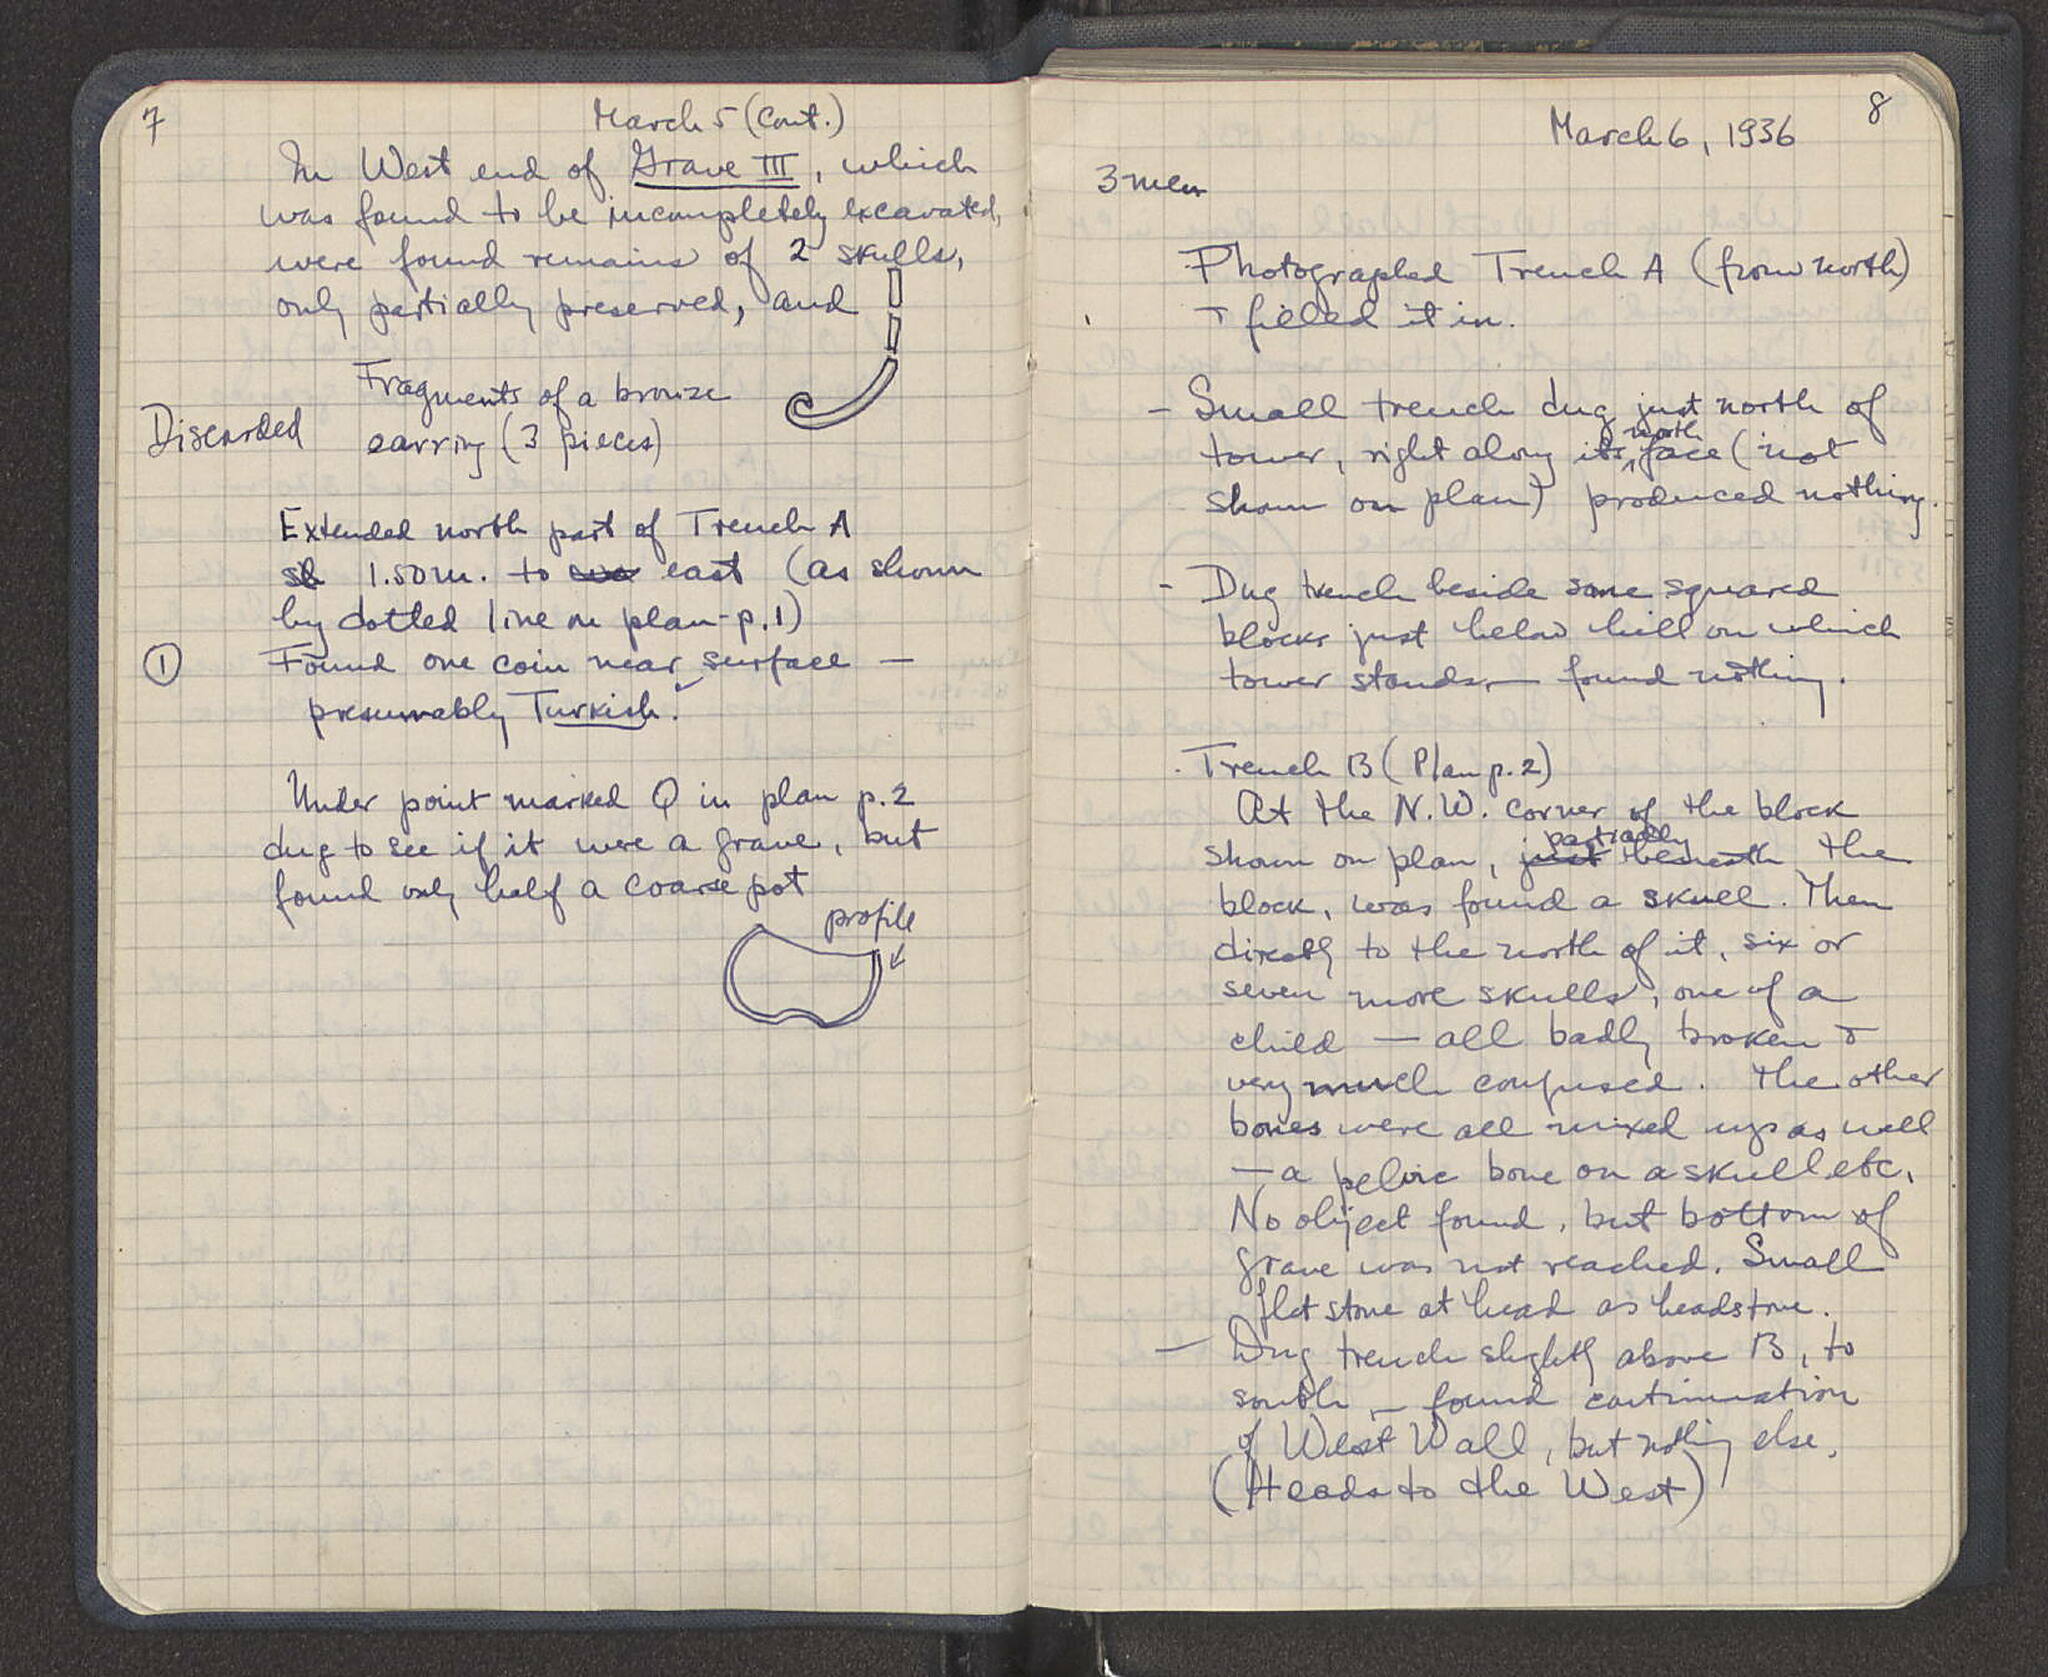 7
March 5 (Cont.)
In West end of Grave III, which
was found to be incompletely excavated,
were found remains of 2 skulls,
only partially preserved, and
Fragments of a bronze
Discarded earring (3 pieces)
Extended north part of Trench A
1.50 m. to east (as shown
by dotted line on plan - p. 1)
① Found one coin near surface —
presumably Turkish.
Under point marked Q in plan p. 2
dug to see if it were a grave, but
found only half a coarse pot
profile
8
March 6, 1936
3 men
Photographed Trench A (from north)
+ filled it in.
- Small trench dug just north of
tower, right along its north face (not
shown on plan) produced nothing.
- Dug trench beside some squared
blocks just below hill on which
tower stands, — found nothing.
Trench B (Plan p. 2)
At the N.W. corner of the block
shown on plan, just partially beneath the
block, was found a skull. Then
directly to the north of it, six or
seven more skulls, one of a
child — all badly broken +
very much confused. The other
bones were all mixed up as well
— a pelvic bone on a skull etc.
No object found, but bottom of
grave was not reached. Small
flat stone at head as headstone.
— Dug trench slightly above B, to
south, — found continuation
of West Wall, but nothing else.
(Heads to the West)